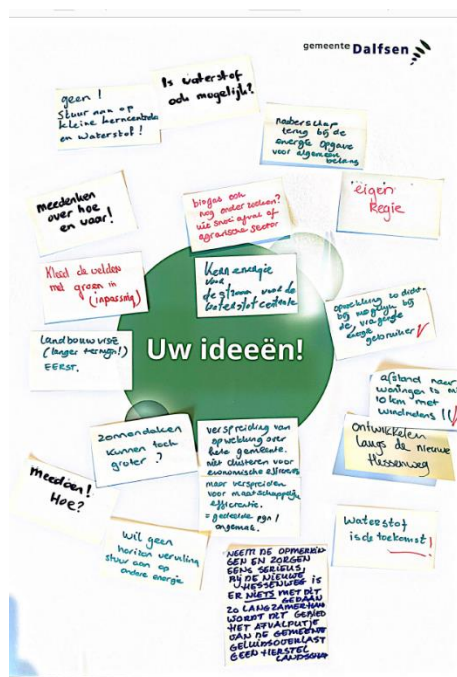 gemeente Dalfsen
Is waterstof
ook mogelijk?
geen!
Stuur aan op
kleine kerncentrales
en waterstof!
naoberschap
terug bij de
energie opgave
voor algemeen
belang
meedenken
over hoe
en waar!
biogas ook
nog onderzoeken?
uit snoeiafval of
agrarische sector
eigen
Regie
Kleed de velden
met groen in
(inpassing)
Kernenergie
voor
de stroom voor de
waterstof centrale
opwekking zo dicht
bij mogelijk bij
de vragende
energie
gebruiker
Landbouwvisie
(langer termijn!)
EERST.
Uw ideeën!
afstand naar
woningen is min
10 km met
windmolens !!
zonnendaken
kunnen toch
groter ?
verspreiding van
opwekking over
hele gemeente.
niet clusteren voor
economische efficientie
maar verspreiden
voor maatschappelijke
efficientie.
= gedeelde pijn /
ongemak.
ontwikkelen
langs de nieuwe
Hessenweg
meedoen!
Hoe?
wil geen
horizon vervuiling
stuur aan op
andere energie
Waterstof
is de toekomst!
NEEM DE OPMERKIN
GEN EN ZORGEN
EENS SERIEUS,
BIJ DE NIEUWE
HESSENWEG IS
ER NIETS MET DIT
GEDAAN
ZO LANGZAMERHAND
WORDT DIT GEBIED
HET AFVALPUTJE
VAN DE GEMEENTE
GELUIDSOVERLAST
GEEN HERSTEL
LANDSCHAP